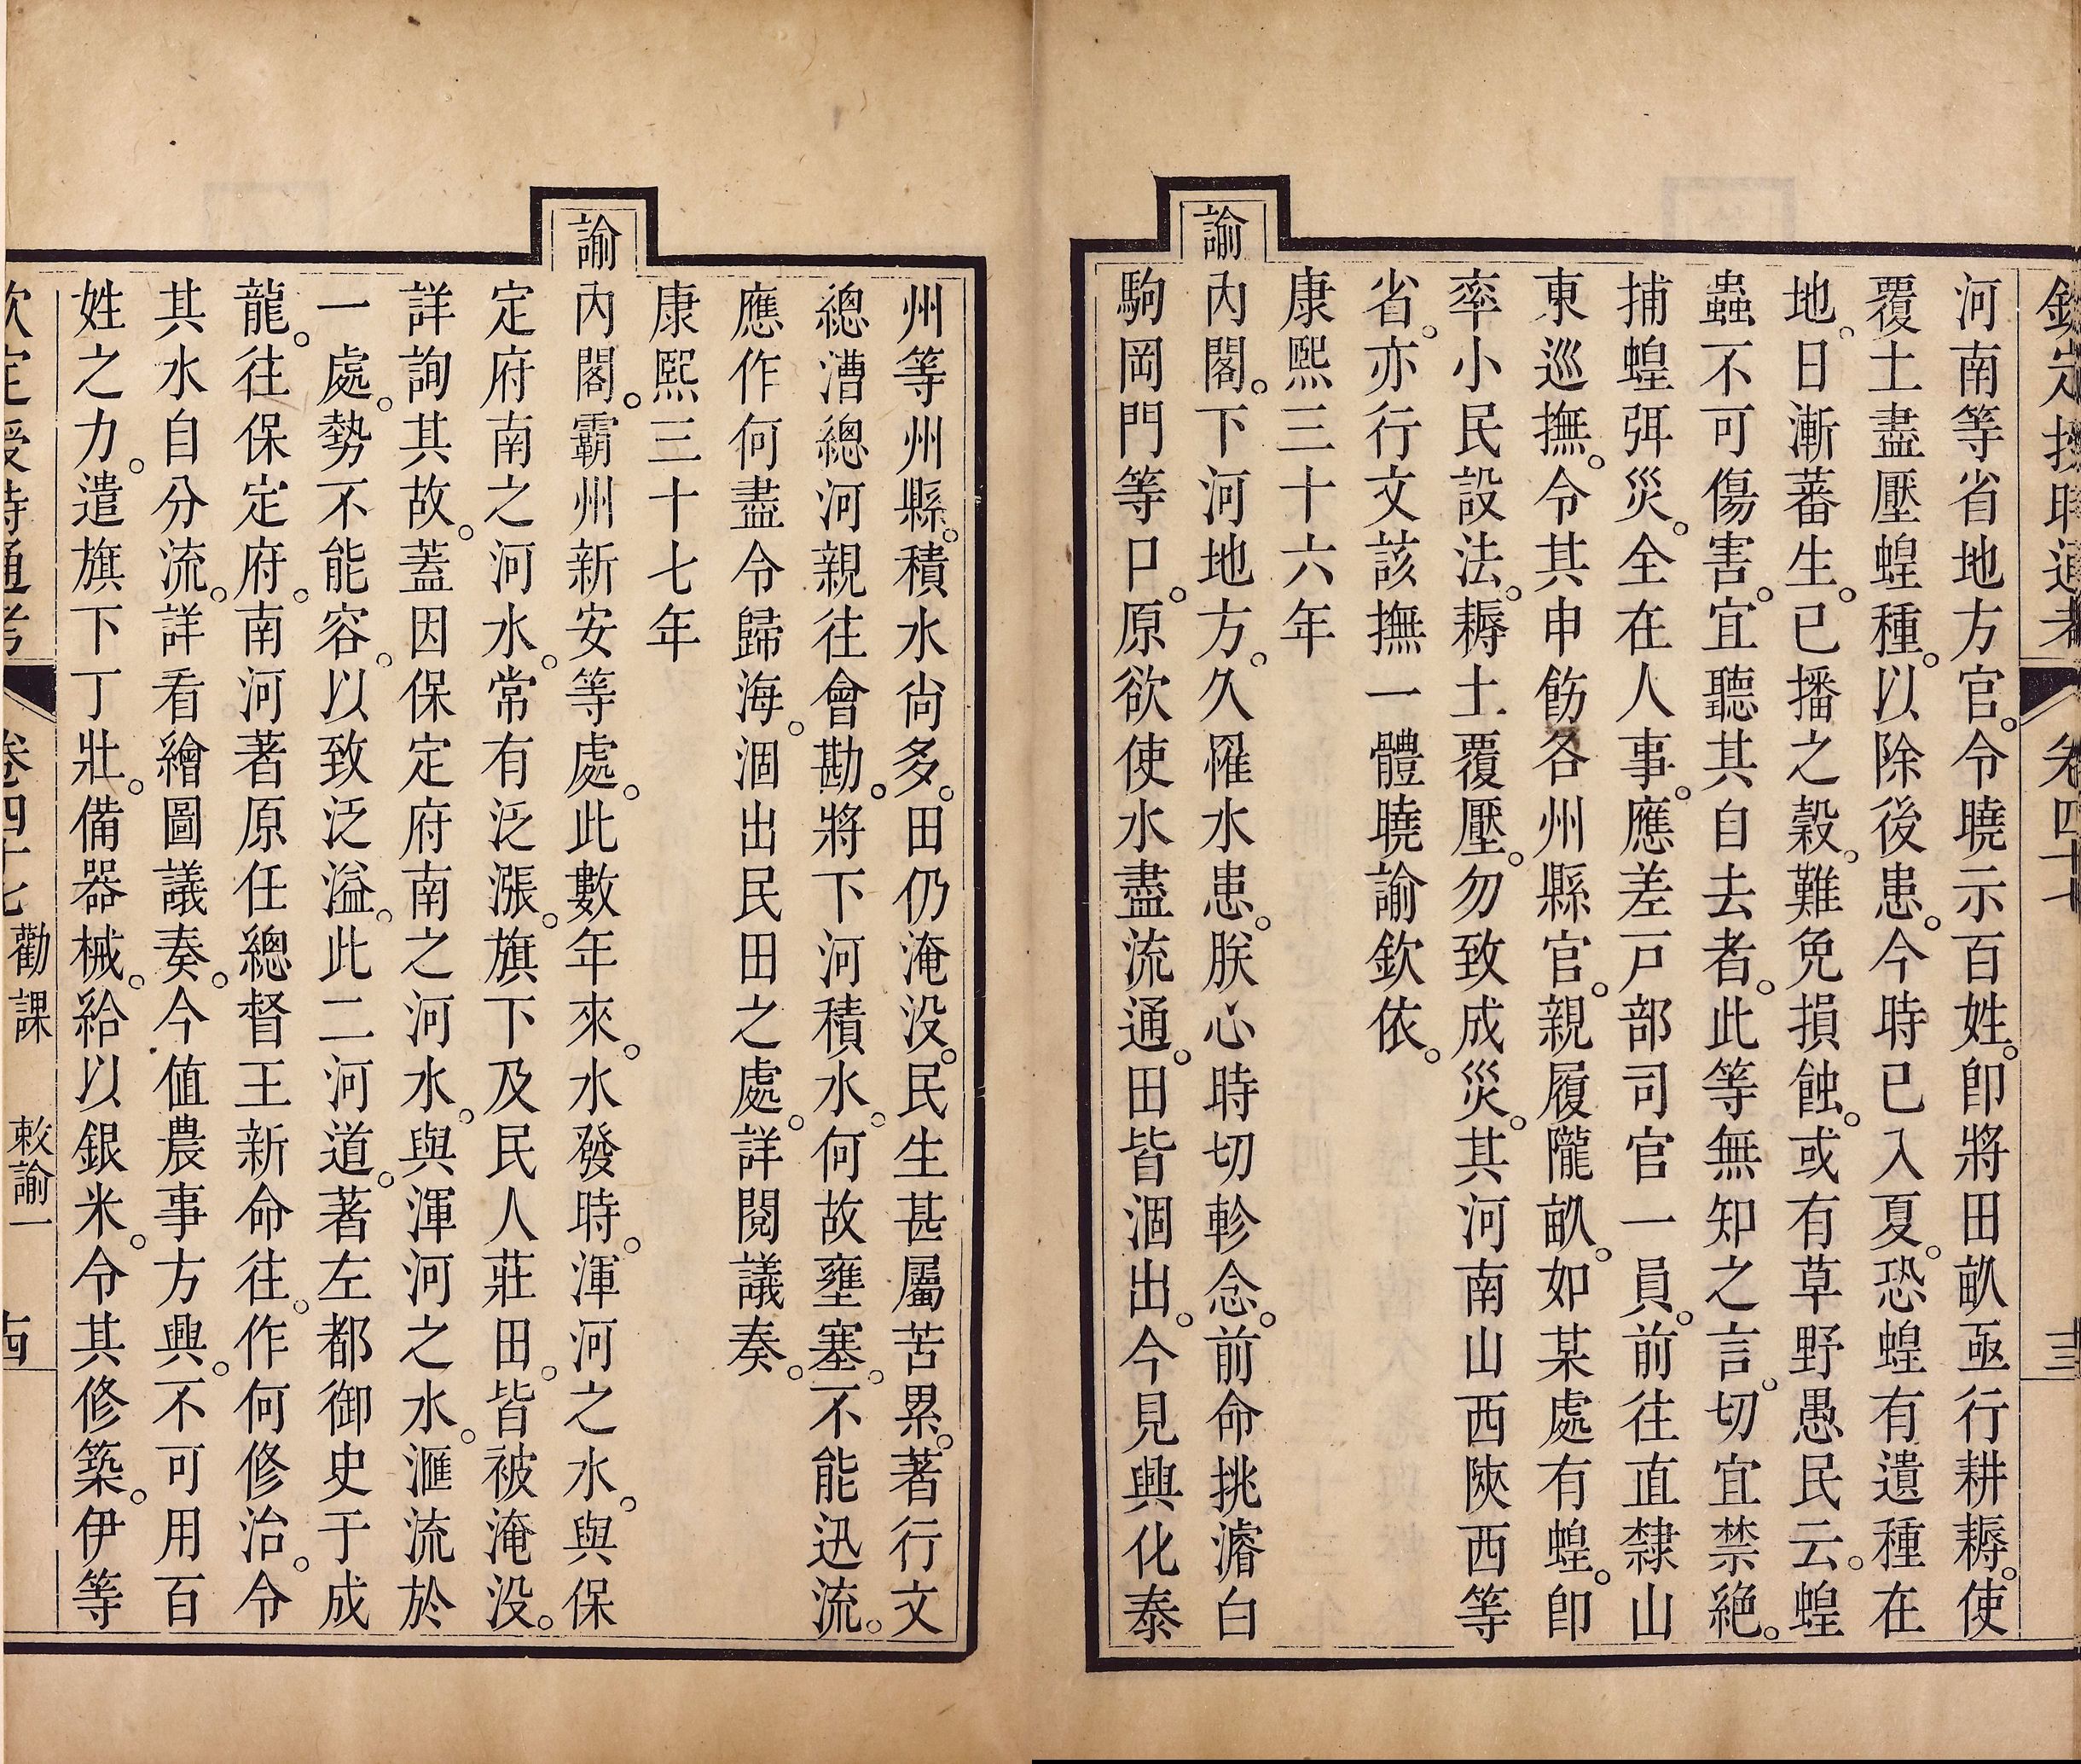 欽定授時通考 卷四十七 三
河南等省地方官。令曉示百姓。卽將田畝亟行耕耨。使
覆土盡壓蝗種。以除後患。今時已入夏。恐蝗有遺種在
地。日漸蕃生。已播之穀。難免損蝕。或有草野愚民云。蝗
蟲不可傷害。宜聽其自去者。此等無知之言。切宜禁絕。
捕蝗弭災。全在人事。應差戶部司官一員。前往直隸山
東巡撫。令其申飭各州縣官。親履隴畝。如某處有蝗。卽
率小民設法。耨土覆壓。勿致成災。其河南山西陝西等
省。亦行文該撫一體曉諭欽依。
康熙三十六年
諭內閣。下河地方。久罹水患。朕心時切軫念。前命挑濬白
駒岡門等口。原欲使水盡流通。田皆涸出。今見興化泰
州等州縣。積水尚多。田仍淹没。民生甚屬苦累。著行文
總漕總河親往會勘。將下河積水。何故壅塞。不能迅流。
應作何盡令歸海。涸出民田之處。詳閱議奏。
康熙三十七年
諭內閣。霸州新安等處。此數年來。水發時。渾河之水。與保
定府南之河水。常有泛漲。旗下及民人莊田。皆被淹没。
詳詢其故。蓋因保定府南之河水。與渾河之水。滙流於
一處。勢不能容。以致泛溢。此二河道。著左都御史于成
龍。往保定府。南河著原任總督王新命往。作何修治。令
其水自分流。詳看繪圖議奏。今值農事方興。不可用百
姓之力。遣旗下丁壯。備器械。給以銀米。令其修築。伊等
欽定授時通考 卷四十七 勸課 敕諭一 古